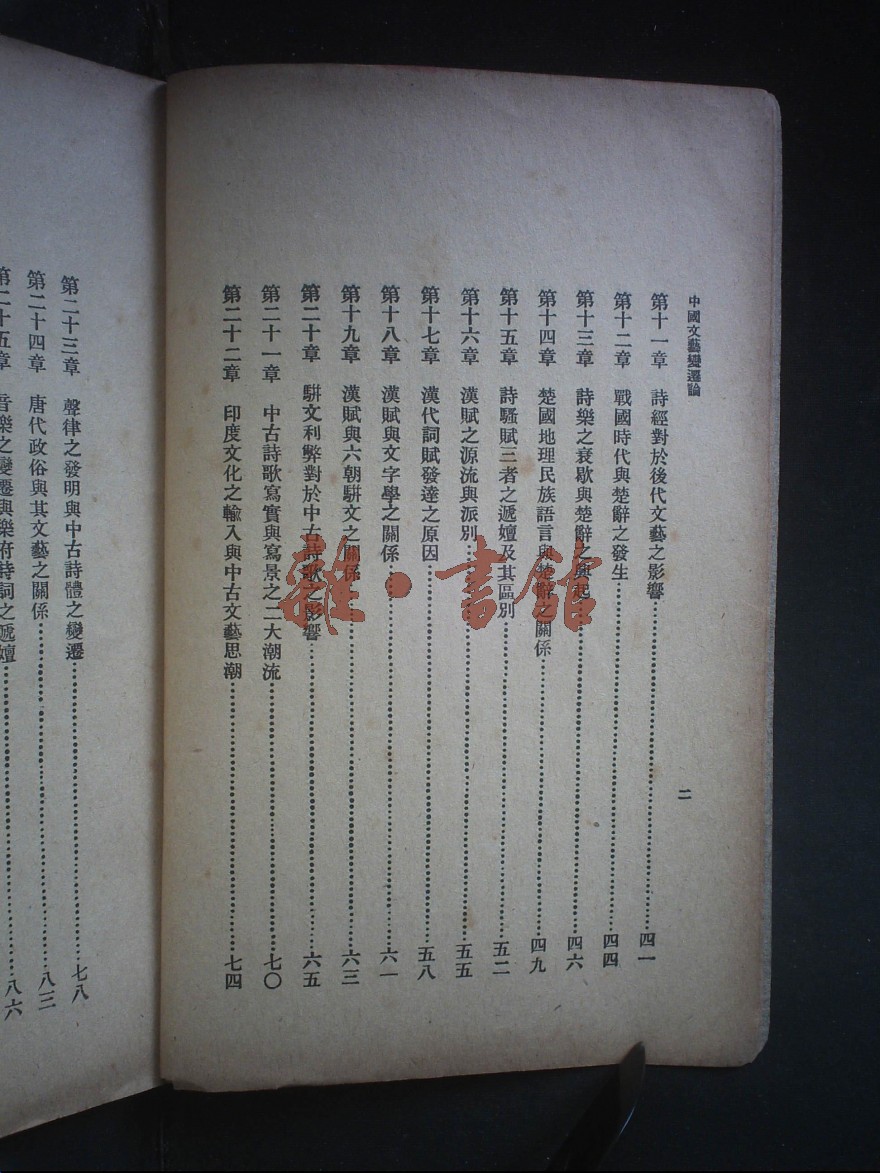 中國文藝變遷論
二
第十一章 詩經對於後代文藝之影響……四一
第十二章 戰國時代與楚辭之發生……四四
第十三章 詩樂之衰歇與楚辭之興起……四六
第十四章 楚國地理民族語言與楚辭之關係……四九
第十五章 詩騷賦三者之遞嬗及其區別……五二
第十六章 漢賦之源流與派別……五五
第十七章 漢代詞賦發達之原因……五八
第十八章 漢賦與文字學之關係……六一
第十九章 漢賦與六朝駢文之關係……六三
第二十章 駢文利弊對於中古詩歌之影響……六五
第二十一章 中古詩歌寫實與寫景之二大潮流……七〇
第二十二章 印度文化之輸入與中古文藝思潮……七四
第二十三章 聲律之發明與中古詩體之變遷……七八
第二十四章 唐代政俗與其文藝之關係……八三
第二十五章 音樂之變遷與樂府詩詞之遞嬗……八六
雜·書館